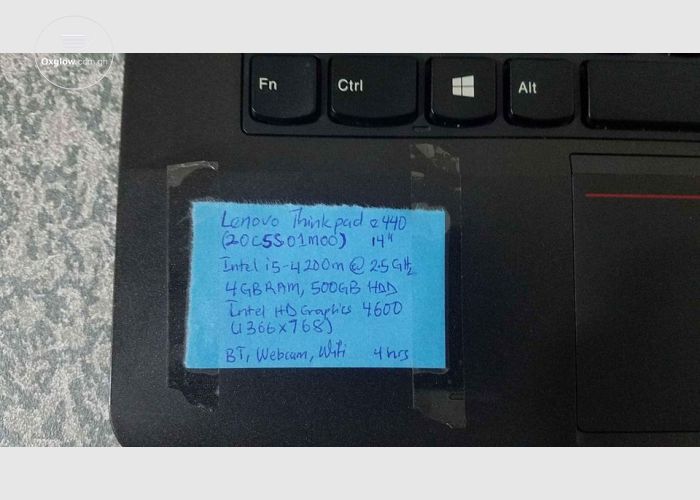 Oxglow.com.gh
Fn
Ctrl
Alt
Lenovo Thinkpad e440
(20C5S01M00) 14"
Intel i5-4200m @ 2.5GHz
4GB RAM, 500GB HDD
Intel HD Graphics 4600
(1366x768)
BT, Webcam, Wifi 4hrs